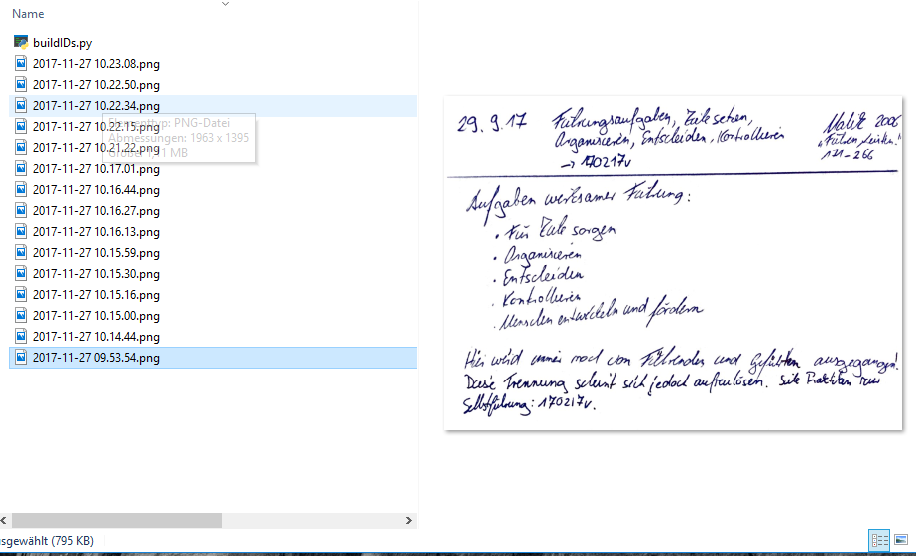 Name
buildIDs.py
2017-11-27 10.23.08.png
2017-11-27 10.22.50.png
2017-11-27 10.22.34.png
2017-11-27 10.22.15.png
2017-11-27 10.21.22.png
2017-11-27 10.17.01.png
2017-11-27 10.16.44.png
2017-11-27 10.16.27.png
2017-11-27 10.16.13.png
2017-11-27 10.15.59.png
2017-11-27 10.15.30.png
2017-11-27 10.15.16.png
2017-11-27 10.15.00.png
2017-11-27 10.14.44.png
2017-11-27 09.53.54.png
Elementtyp: PNG-Datei
Abmessungen: 1963 x 1395
Größe: MB
sgewählt (795 KB)
29.9.17
Führungsaufgaben, Ziele setzen,
Organisieren, Entscheiden, Kontrollieren
→ 170217v
Malik 2006
"Führen, Leisten."
121-266
Aufgaben wirksamer Führung:
• Für Ziele sorgen
• Organisieren
• Entscheiden
• Kontrollieren
• Menschen entwickeln und fördern
Hier wird immer noch von Führenden und Geführten ausgegangen!
Diese Trennung scheint sich jedoch aufzulösen. Siehe Praktiken
Selbstführung: 170217v.